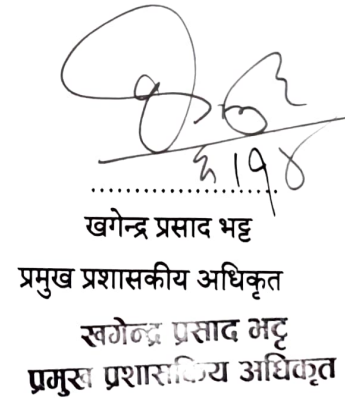 ६।१४
खगेन्द्र प्रसाद भट्ट
प्रमुख प्रशासकीय अधिकृत
खगेन्द्र प्रसाद भट्ट
प्रमुख प्रशासकिय अधिकृत